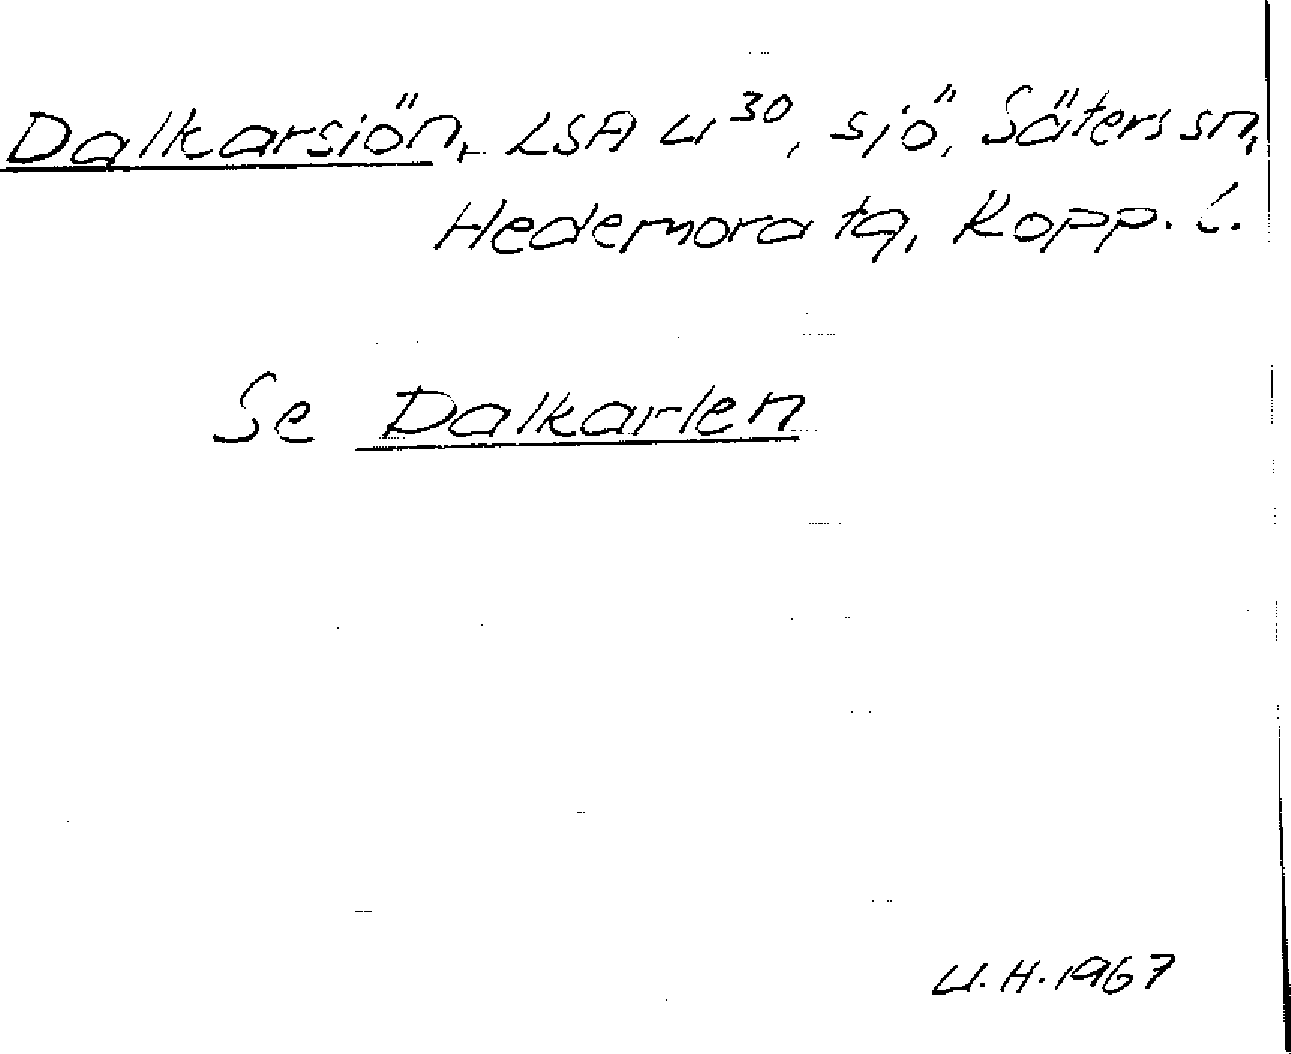 Dalkarsiön, LSA U³⁰, sjö, Säters sn,
Hedemora tg, Kopp. l.
Se Dalkarlen
U.H. 1967